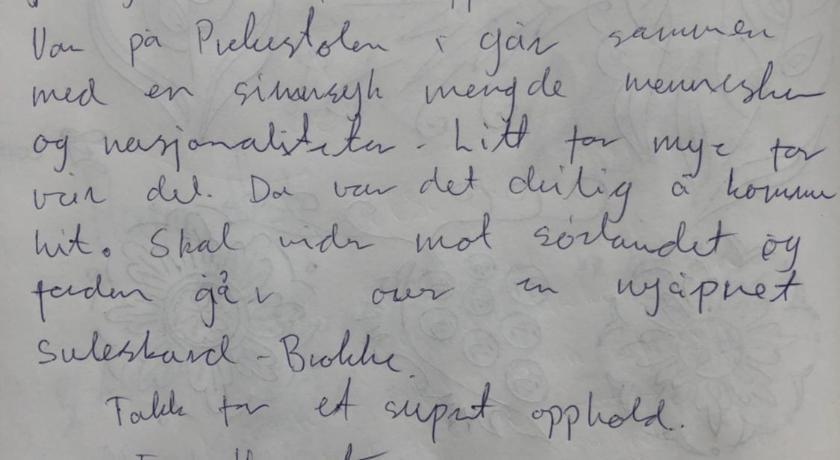 Var på Prekestolen i går sammen
med en sinnsyk mengde mennesker
og nasjonaliteter. Litt for mye for
vår del. Da var det deilig å komme
hit. Skal vider mot sørlandet og
ferden går over en nyåpnet
Suleskard - Brokke.
Takk for et supert opphold.